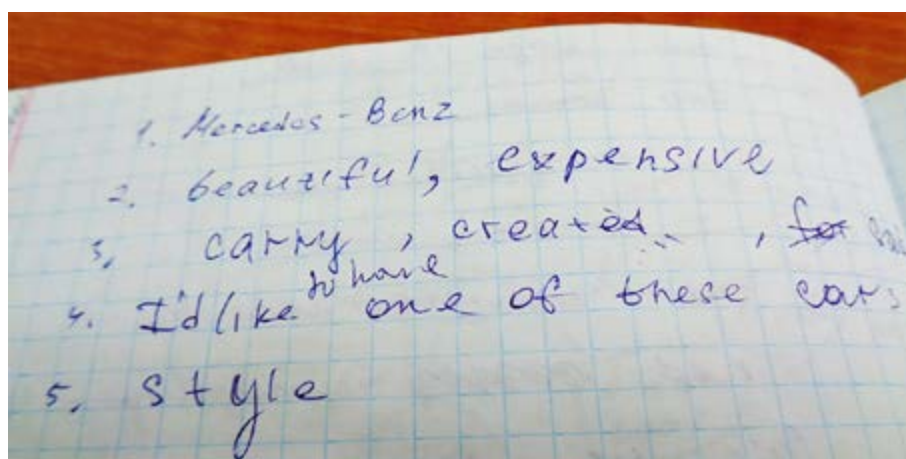 1. Mercedes - Benz
2. beautiful, expensive
3. carry, created, for
4. I'd like to have one of these cars
5. style